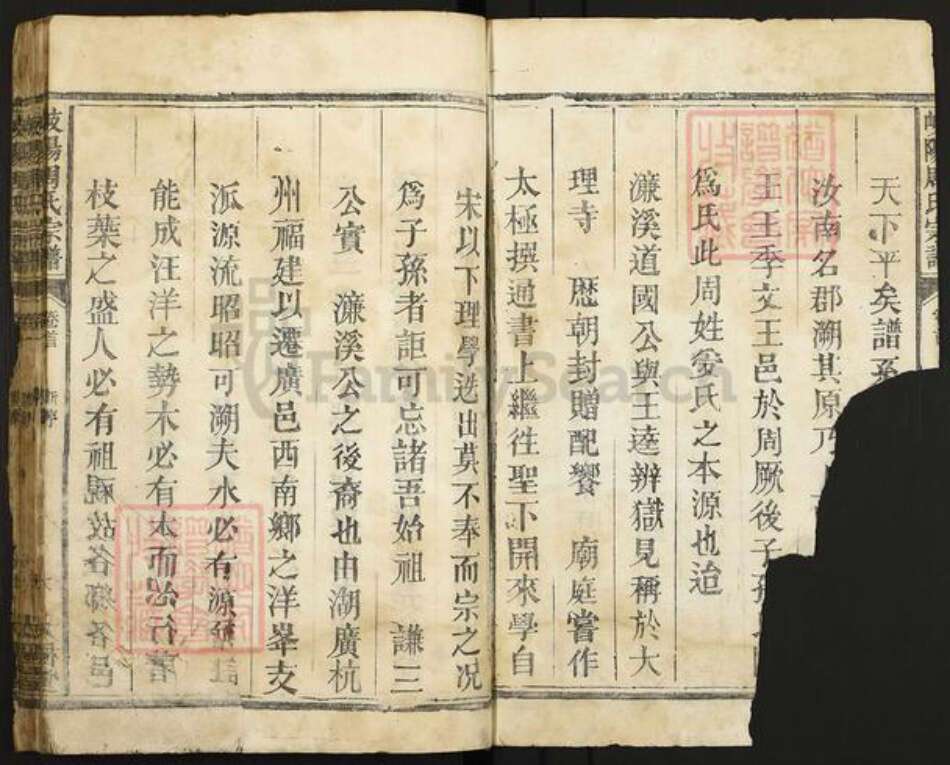 天下平矣譜
汝南名郡溯其原乃
王王季文王邑於周厥後子孫
爲氏此周姓受氏之本源也迨
濂溪道國公與王逵辨獄見稱於大
理寺 歷朝封贈配饗 廟庭嘗作
太極撰通書上繼往聖下開來學自
宋以下理學迭出莫不奉而宗之况
爲子孫者詎可忘諸吾始祖 謙三
公實 濂溪公之後裔也由湖廣杭
州福建以遷廣邑西南鄉之洋峯支
派源流昭昭可溯夫水必有源
能成汪洋之勢木必有本而
枝葉之盛人必有祖 故各鄉各邑
岐陽周氏宗譜 卷首
FamilySearch